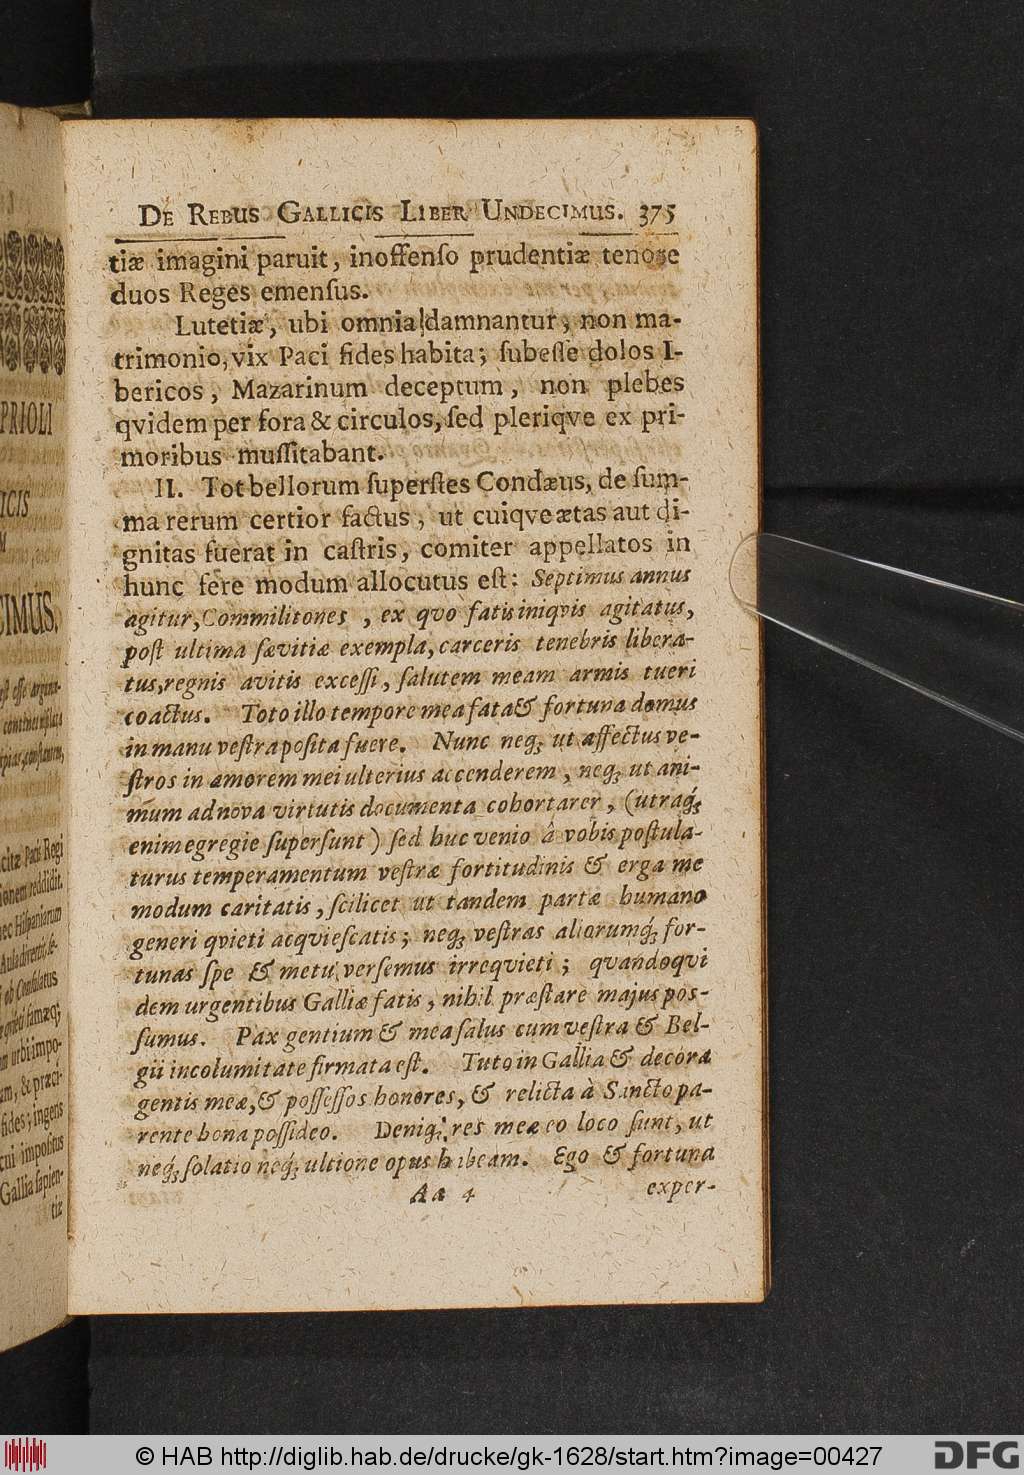 PRIOLI
ICIS
M
CIMUS.
est esse argum-
citæ Pacis Regi
ionem reddidit.
nec Hispaniarum
Aula divertit, se-
ob Consulatus
famæq́;
m urbi impo-
am, & præci-
fides; ingens
cui impositus
Gallia sapien-
tiæ
DE REBUS GALLICIS LIBER UNDECIMUS. 375
tiæ imagini paruit, inoffenso prudentiæ tenore
duos Reges emensus.
Lutetiæ, ubi omnia damnantur, non ma-
trimonio, vix Paci fides habita; subesse dolos I-
bericos, Mazarinum deceptum, non plebes
qvidem per fora & circulos, sed pleriqve ex pri-
moribus mussitabant.
II. Tot bellorum superstes Condæus, de sum-
ma rerum certior factus, ut cuiqve ætas aut di-
gnitas fuerat in castris, comiter appellatos in
hunc fere modum allocutus est: Septimus annus
agitur, Commilitones, ex qvo fatis iniqvis agitatus,
post ultima sævitiæ exempla, carceris tenebris libera-
tus, regnis avitis excessi, salutem meam armis tueri
coactus. Toto illo tempore mea fata & fortuna domus
in manu vestra posita fuere. Nunc neq; ut affectus ve-
stros in amorem mei ulterius accenderem, neq; ut ani-
mum ad nova virtutis documenta cohortarer, (utraq́;
enim egregie supersunt) sed huc venio â vobis postula-
turus temperamentum vestræ fortitudinis & erga me
modum caritatis, scilicet ut tandem partæ humano
generi qvieti acqviescatis; neq; vestras aliorumq́; for-
tunas spe & metu versemus irreqvieti; qvandoqvi
dem urgentibus Galliæ fatis, nihil præstare majus pos-
sumus. Pax gentium & mea salus cum vestra & Bel-
gii incolumitate firmata est. Tuto in Gallia & decora
gentis meæ, & possessos honores, & relicta à Sancto pa-
rente bona possideo. Deniq; res meæ eo loco sunt, ut
neq́; solatio neq́; ultione opus habeam. Ego & fortuna
Aa 4
exper-
© HAB http://diglib.hab.de/drucke/gk-1628/start.htm?image=00427
DFG